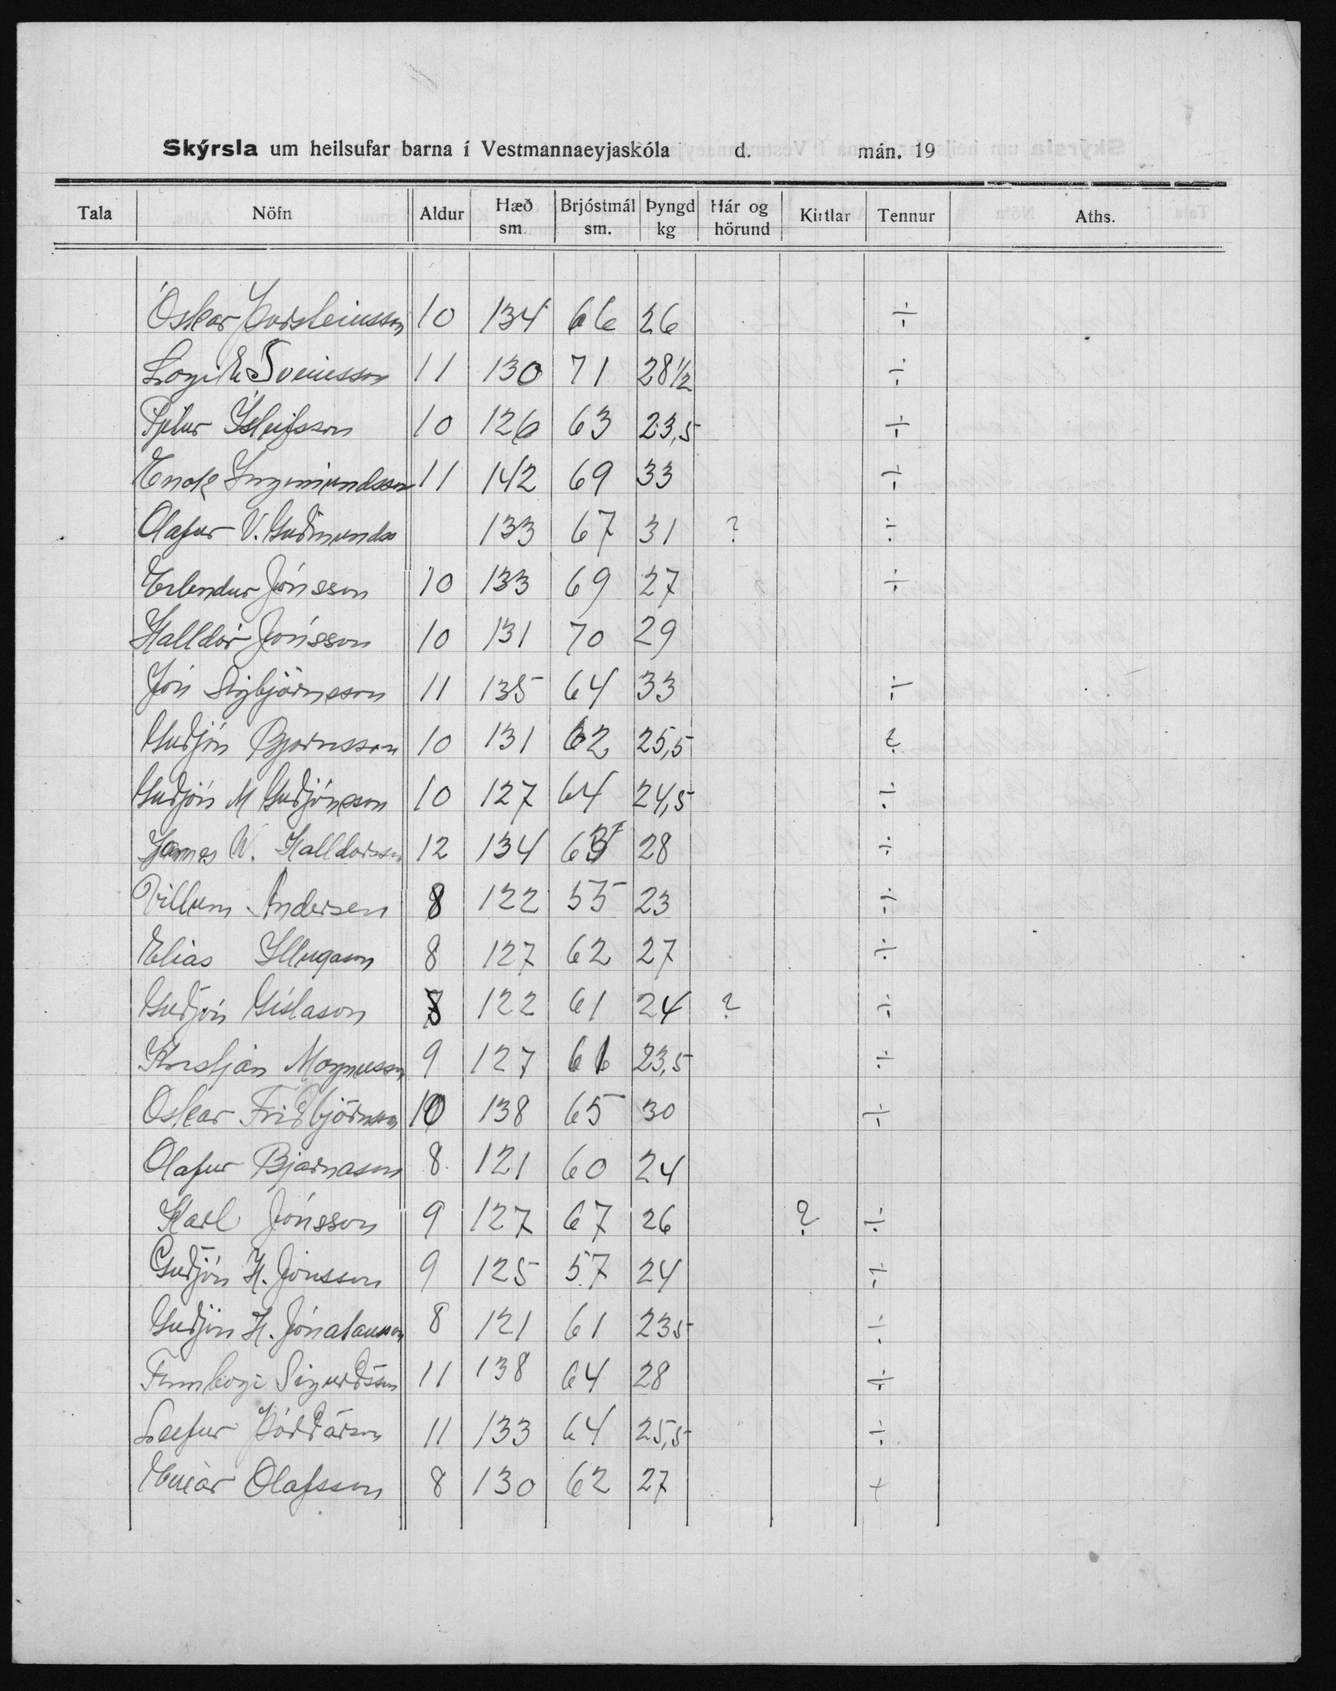 Skýrsla um heilsufar barna í Vestmannaeyjaskóla d. mán. 19
Tala Nöfn Aldur Hæð sm. Brjóstmál sm. Þyngd kg Hár og hörund Kirtlar Tennur Aths.
Óskar Þorsteinsson 10 134 66 26 ÷
Logi E Sveinsson 11 130 71 28½ ÷
Pjetur Ísleifsson 10 126 63 23,5 ÷
Enok Ingimundsson 11 142 69 33 ÷
Olafur V. Guðmundss 133 67 31 ? ÷
Erlendur Jónsson 10 133 69 27 ÷
Halldór Jónsson 10 131 70 29
Jón Sigbjörnsson 11 135 64 33 ÷
Guðjón Bjornsson 10 131 62 25,5 ?
Guðjón M Guðjónsson 10 127 64 24,5 ÷
James W. Halldorsson 12 134 63 28 ÷
Villum Andersen 8 122 55 23 ÷
Elias Illugason 8 127 62 27 ÷
Guðjón Gíslason 8 122 61 24 ? ÷
Kristján Magnusson 9 127 61 23,5 ÷
Oskar Friðbjörnsson 10 138 65 30 ÷
Olafur Bjarnason 8 121 60 24
Karl Jónsson 9 127 67 26 ? ÷
Guðjón H. Jónsson 9 125 57 24 ÷
Guðjón H. Jónatansson 8 121 61 23 5 ÷
Finnbogi Sigurðsson 11 138 64 28 ÷
Þórðarson 11 133 64 25,5 ÷
Einar Olafsson 8 130 62 27 +